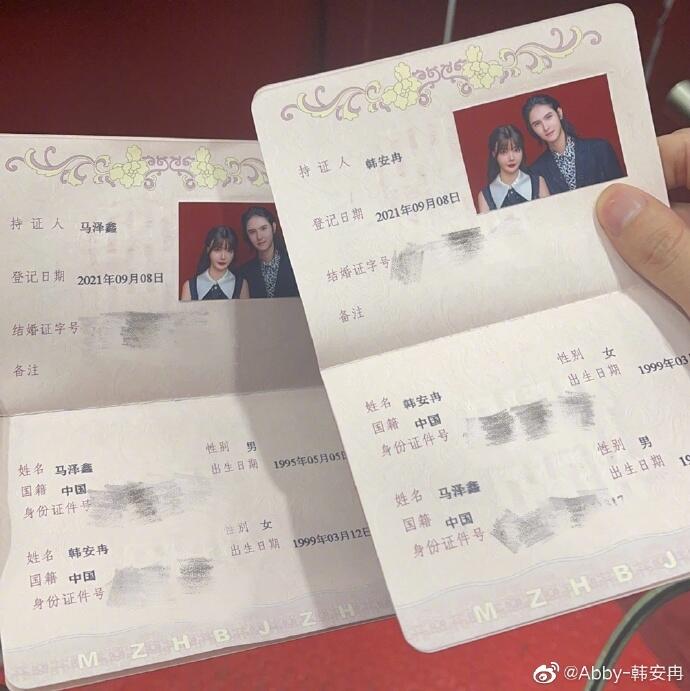 持证人 马泽鑫
登记日期 2021年09月08日
结婚证字号
备注
姓名 马泽鑫 性别 男
国籍 中国 出生日期 1995年05月05日
身份证件号
姓名 韩安冉 性别 女
国籍 中国 出生日期 1999年03月12日
身份证件号
MZHBJZH
持证人 韩安冉
登记日期 2021年09月08日
结婚证字号
备注
姓名 韩安冉 性别 女
国籍 中国 出生日期 1999年03
身份证件号
姓名 马泽鑫 性别 男
国籍 中国 出生日期
身份证件号
MZHBJ
@Abby-韩安冉